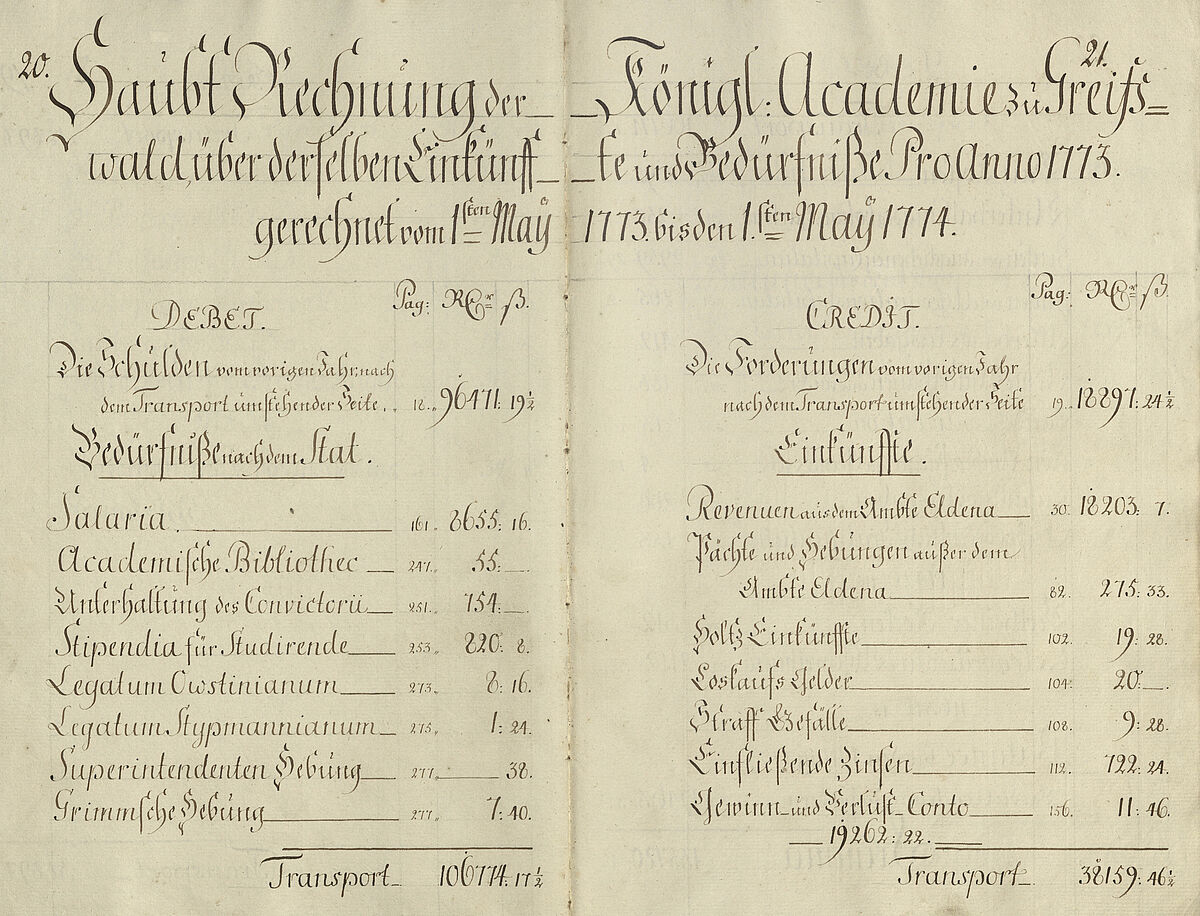 20.
Haubt Rechnung der
wald, über derselben Einkünff-
gerechnet vom 1sten May
DEBET.
Pag: RThr ß.
Die Schulden vom vorigen Jahr, nach
dem Transport umstehender Seite. 18. 96471: 19½
Bedürfniße nach dem Stat.
Salaria. 161. 8655: 16.
Academische Bibliothec 247. 55:
Unterhaltung des Convictorii 251. 754:
Stipendia für Studirende 253. 820: 8.
Legatum Owstinianum 273. 8: 16.
Legatum Stypmannianum 275. 1: 24.
Superintendenten Hebung 277. 38.
Grimmsche Hebung 277. 7: 40.
Transport 106774: 17½
21.
Königl: Academie zu Greifs-
te und Bedürfniße Pro Anno 1773.
1773. bis den 1.sten May 1774.
CREDIT.
Pag: RThr ß.
Die Forderungen vom vorigen Jahr
nach dem Transport umstehender Seite 19. 18897: 24½
Einkünffte.
Revenuen aus dem Ambte Eldena 30. 18203: 7.
Pächte und Hebungen außer dem
Ambte Eldena 82. 275: 33.
Holtz Einkünffte 102. 19: 28.
Loskaufs Gelder 104. 20:
Straff Gefälle 108. 9: 28.
Einfließende Zinsen 112. 722: 24.
Gewinn und Verlust Conto 156. 11: 46.
19262: 22.
Transport 38159: 46½